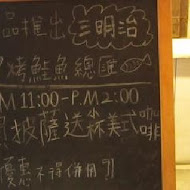 品推出 三明治
烤鮭魚總匯
M 11:00-P.M 2:00
披薩送 美式咖啡
優惠不得併用